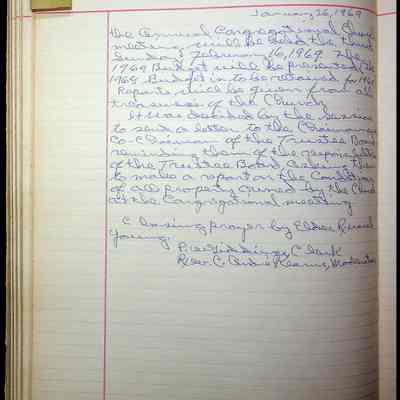 January 26, 1969
the Annual Congregational Church
meeting will be held the third
Sunday February 16, 1969. The
1969 Budget will be presented. The
1968 Budget is to be retained for 1969
Reports will be given from all
treasuries of the Church
It was decided by the session
to send a letter to the Chairman &
Co-Chairman of the Trustee Board
reminding them of the responsibilities
of the Trustee Board asking them
to make a report on the Condition
of all property owned by the Church
at the Congregational meeting
Closing prayer by Elder
Young.
Clerk
Rev. C. Kearns, Moderator